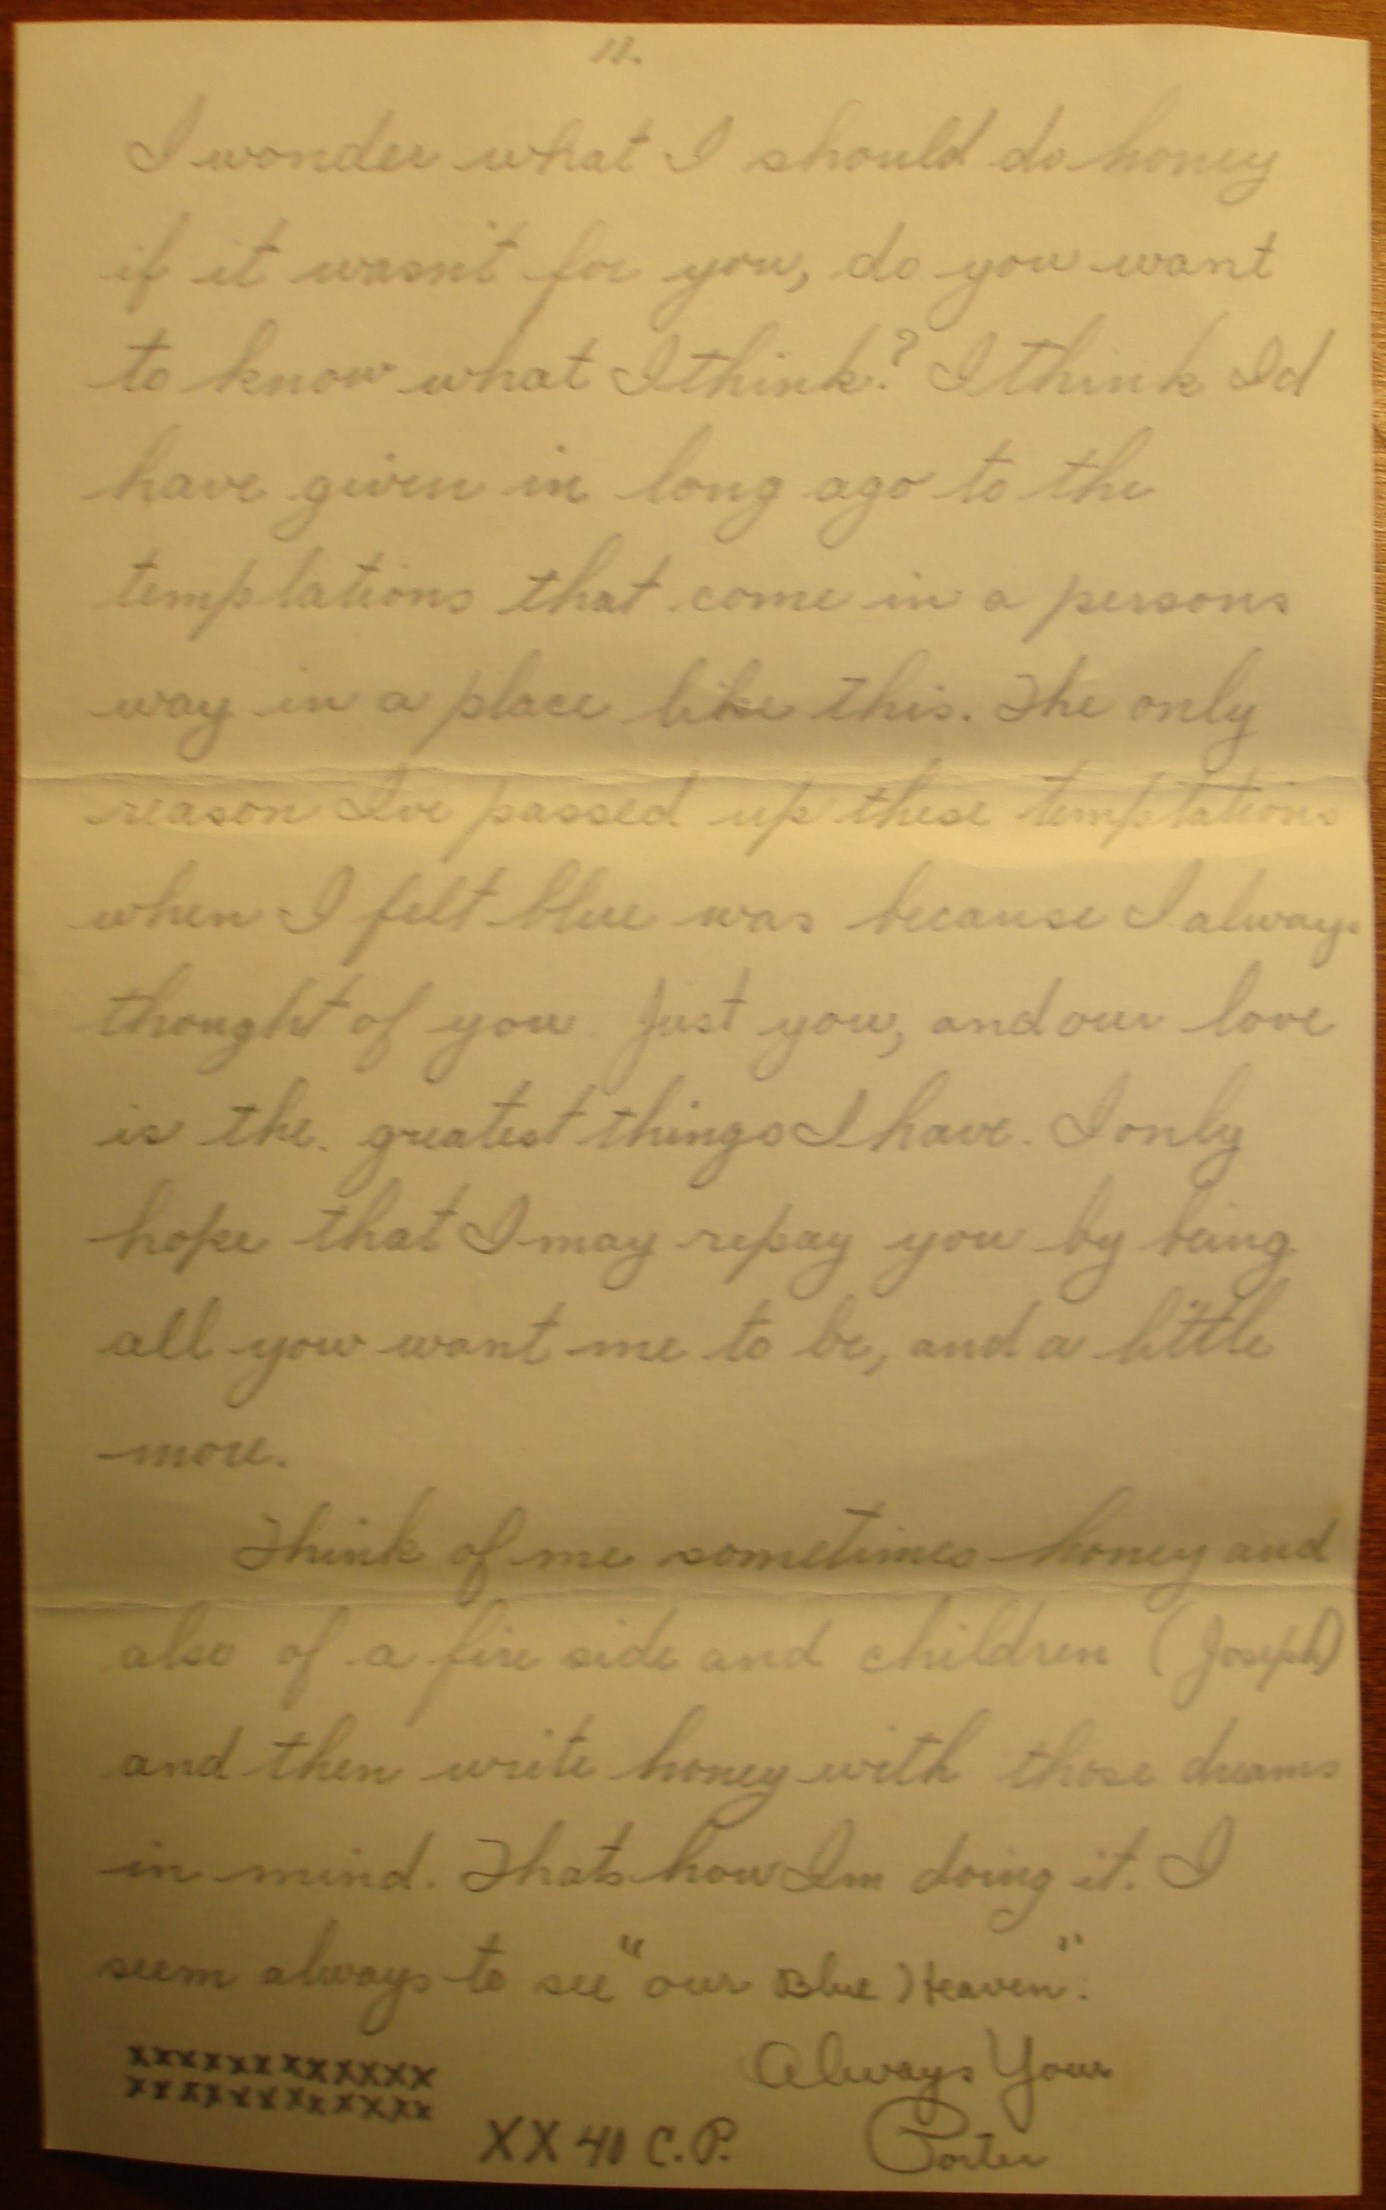 11.
I wonder what I should do honey
if it wasn't for you, do you want
to know what I think? I think Id
have given in long ago to the
temptations that come in a persons
way in a place like this. The only
reason Ive passed up these temptations
when I felt blue was because I always
thought of you. Just you, and our love
is the greatest things I have. I only
hope that I may repay you by being
all you want me to be, and a little
more.
Think of me sometimes honey and
also of a fire side and children (Joseph)
and then write honey with those dreams
in mind. Thats how Im doing it. I
seem always to see "our Blue Heaven".
xxxxxxxxxxxx
xxxxxxxxxxxx
Always Your
XX 40 C.P.
Porter